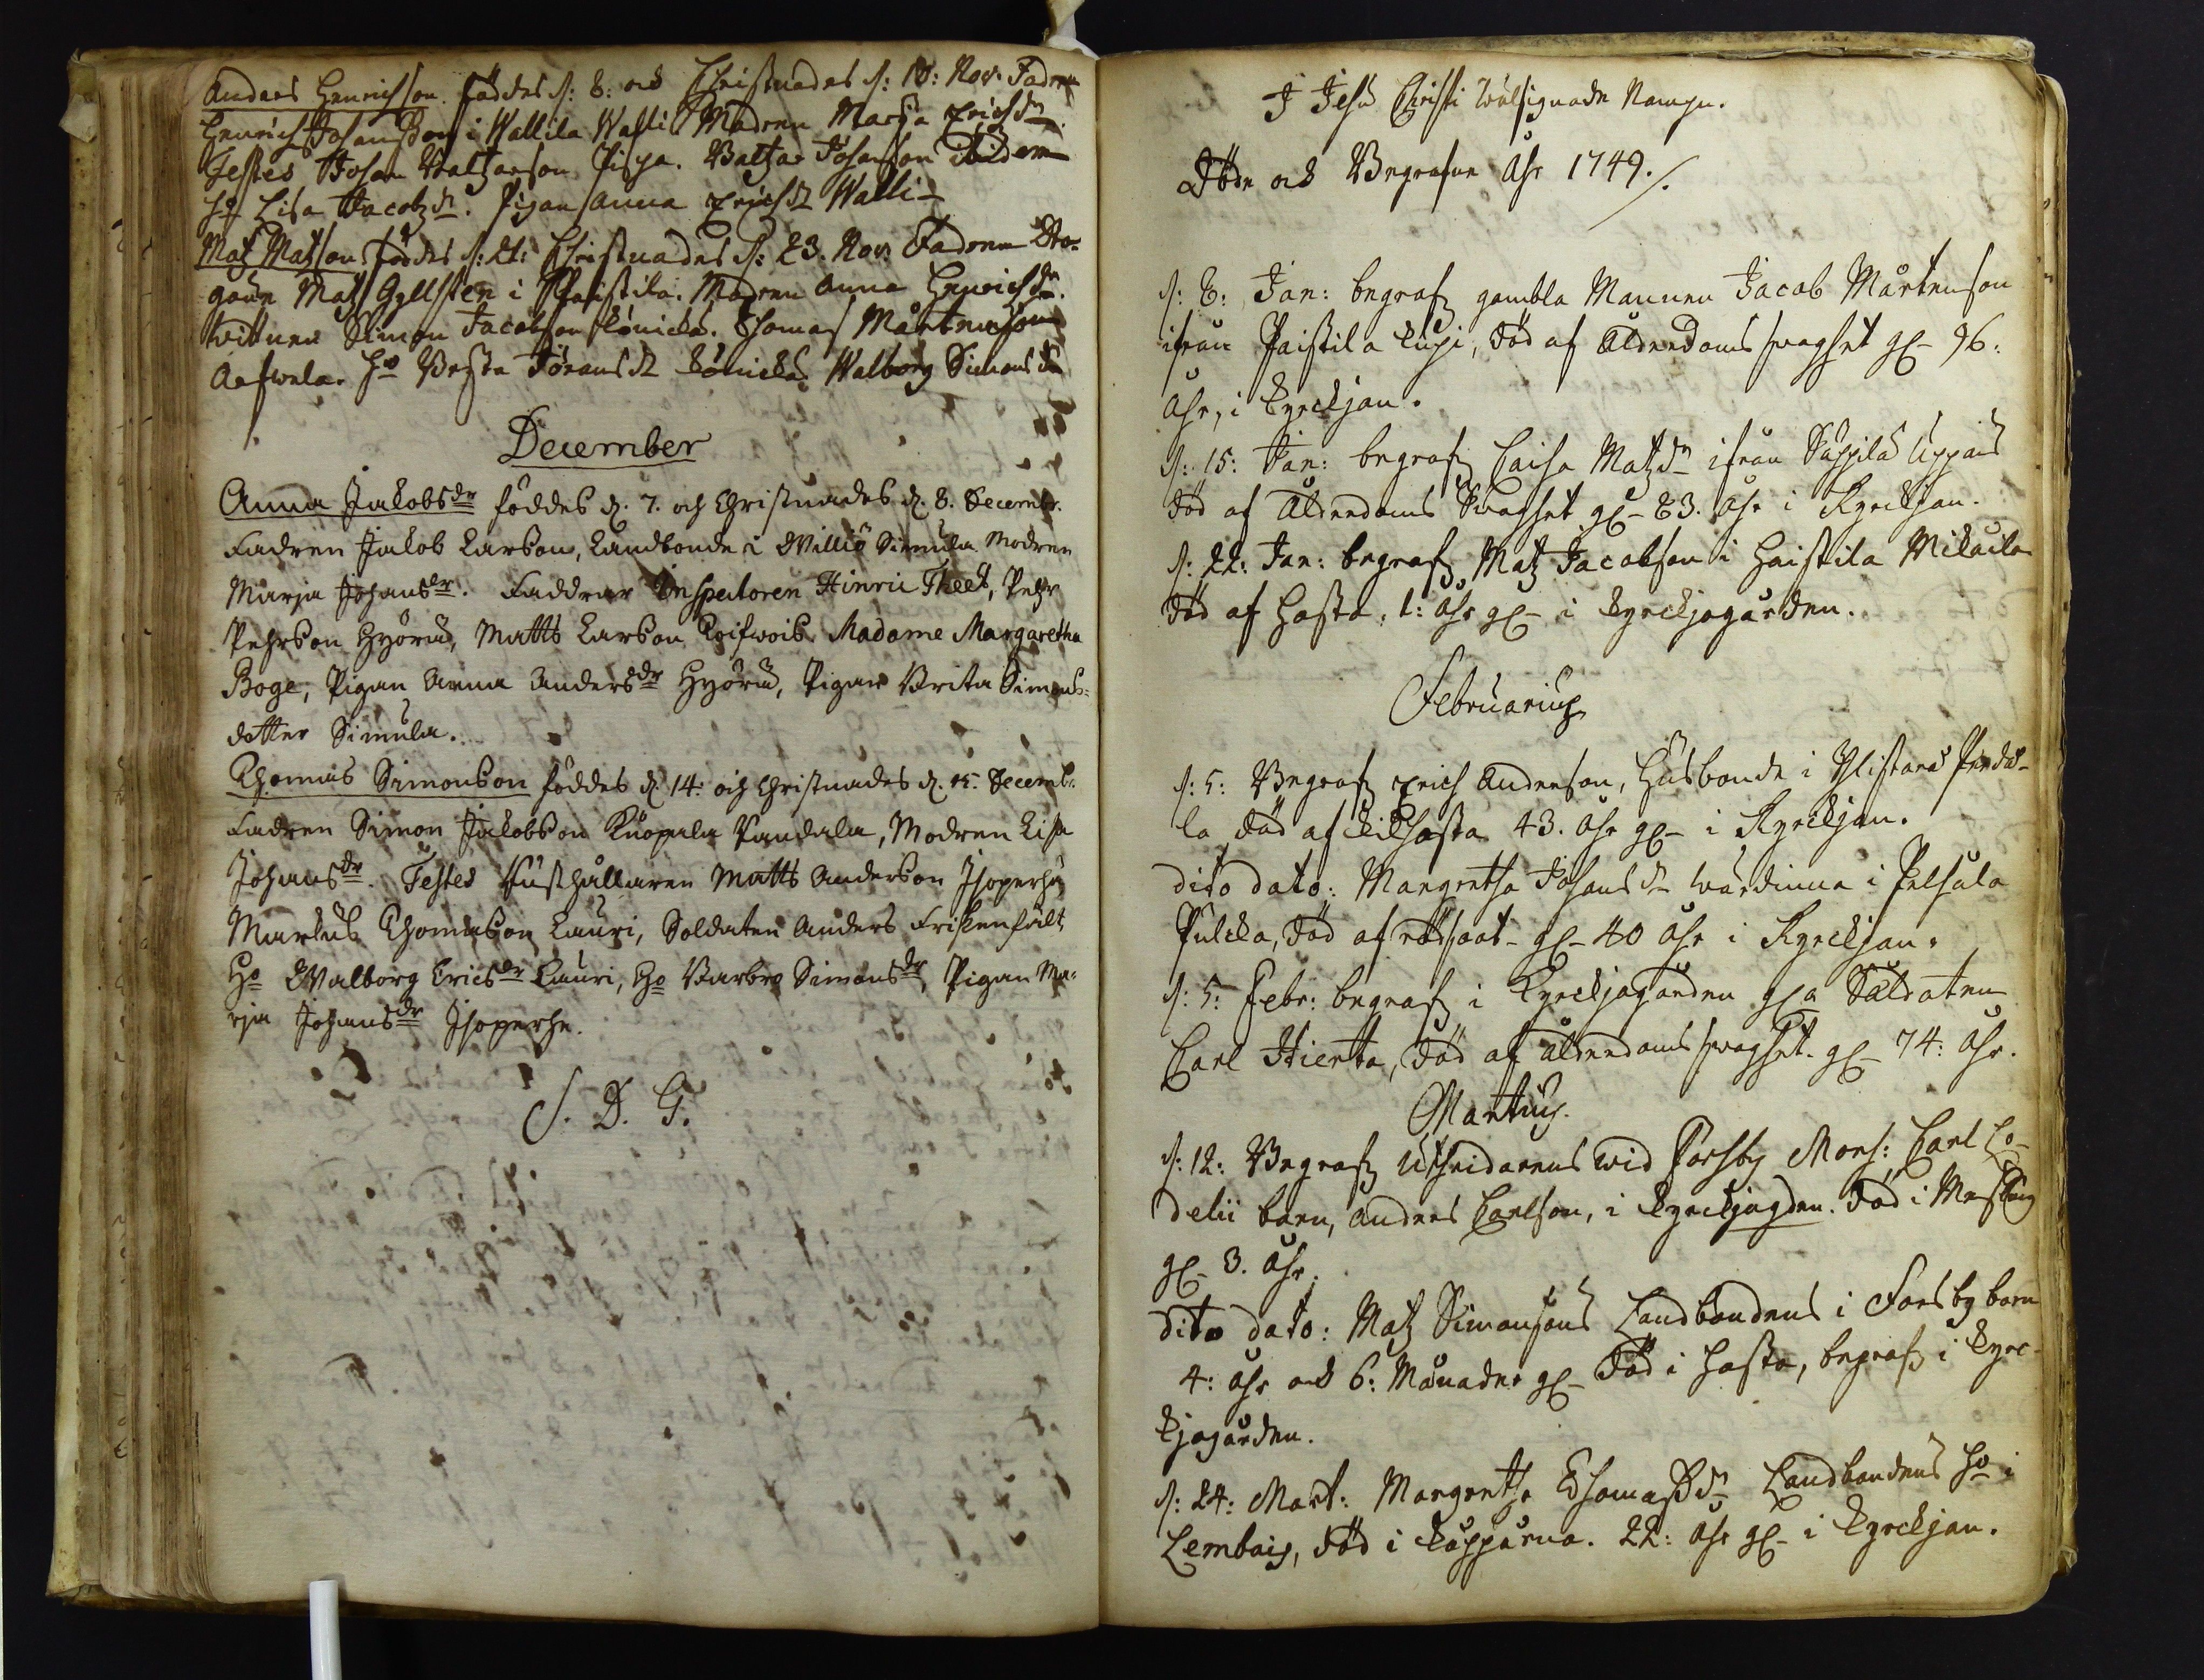 Anders Henrichson föddes d: 8: och Christnades d: 10: Nov: Fadren
Henrich Johansson i Wallila Walli Modren Marja Erichsdr.
Testes Johan Baltzarson Pispa. Baltzar Johansson
ho Lisa Jacobsdr. Pigan Anna Erichsdr Walli
Matz Matson föddes d: 21: Christnades d: 23. Nov: Fadren Dra-
goun Matz Gyllsten i Pharistila. Modren Anna Henrichsdr.
Wittnen Simon Jacobson Könickä. Thomas Mårtenson
Ho Brita Jöransdr Könickä. Walborg Simonsdr
December
Anna Jakobsdr föddes d. 7. och Christnades d. 8. Decembr.
Fadren Jakob Larson, Landbonde i Williö Simula Modren
Marja Johansdr. Faddrar Inspectoren Hinric Theet, Pehr
Pehrson Hyörü, Matts Larson Koifwois, Madame Margaretha
Boge, Pigan Anna Andersdr Hyörü, Pigan Brita Simons-
dotter Simula.
Thomas Simonson föddes d. 14: och Christnades d. 15. Decembr.
Fadren Simon Jakobson Kuopala Vandala, Modren Lisa
Johansdr. Testes Rusthållaren Matts Anderson Isoperhe
Markus Thomason Lauri, Soldaten Anders Friskenfält
Ho Walborg Ericsdr Lauri, Ho Barbro Simonsdr, Pigan Ma-
rja Johansdr Isoperhe.
S. D. G.
I Jesu Christi wälsignade Nampn.
Döde och Begrafne Åhr 1749./.
d: 8: Jan: begrafz gambla Mannen Jacob Mårtenson
ifrån Paistila Eupi, död af Ålderdoms swaghet gl- 96:
Åhr, i Kyrckjan.
d: 15: Jan: begrafz Caisa Matzdr ifrån Suppila Uppais
död af Ålderdoms Swaghet gl- 83. åhr i Kyrckjan.
d: 22: Jan: begrafz Matz Jacobson i Haistila Mickaila
död af Hosta, 1: åhr gl- i Kyrckjogården.
Februarius
d: 5: Begrafz Erich Anderson, Husbonde i Ylistarå Pende-
la död af Kikhosta 43. åhr gl- i Kyrckjan.
dito dato: Margretha Johansdr wärdinna i Pelsula
Pulcka, död af rödsoot- gl- 40 åhr i Kyrckjan.
d: 5: Febr: begrafz i Kyrckjogården gla Saldaten
Carl Hierta, död af Ålderdoms swaghet. gl- 74: åhr.
Martius.
d: 12: Begrafz Uthridarens wid Forsby Mons: Carl Co-
delii barn, Anders Carlson, i Kyrckjogden. Död i Messling
gl- 3. åhr.
dito dato: Matz Simonsons Landbondens i Forsby barn
4: åhr och 6: Månader gl- död i hosta, begrafz i Kyrc-
kjogården.
d: 24: Mart: Margretha Thomassdr Landbondens ho i
Lembois, död i kopporna. 22: åhr gl- i Kyrckjan.